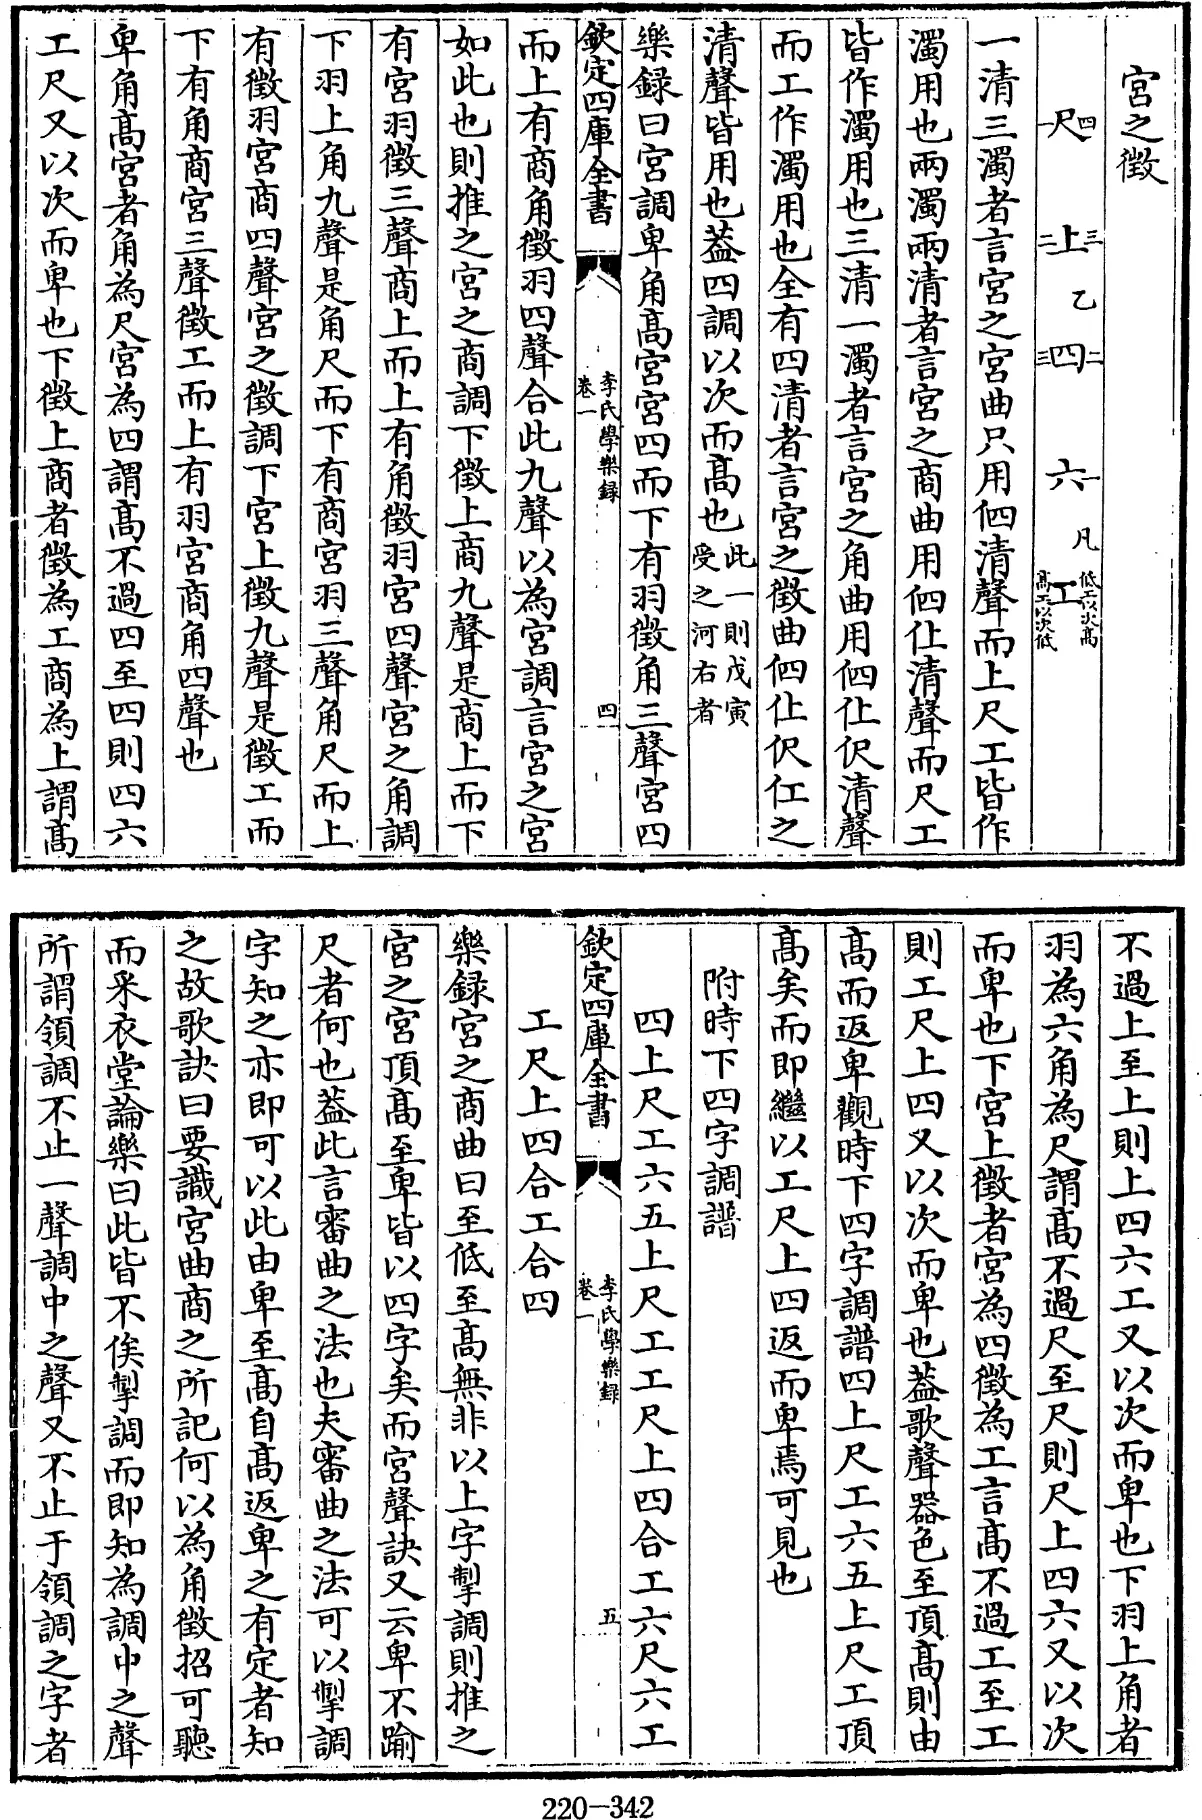 宮之徵
四尺一　三上二　乙　二四三　一六　凡　工低工以次高高工以次低
一清三濁者言宮之宮曲只用伵清聲而上尺工皆作
濁用也兩濁兩清者言宮之商曲用伵仩清聲而尺工
皆作濁用也三清一濁者言宮之角曲用伵仩伬清聲
而工作濁用也全有四清者言宮之徵曲伵仩伬仜之
清聲皆用也葢四調以次而髙也此一則戊寅受之河右者
樂録曰宮調卑角髙宮宮四而下有羽徵角三聲宮四
欽定四庫全書　李氏學樂録卷一　四
而上有商角徵羽四聲合此九聲以為宮調言宮之宮
如此也則推之宮之商調下徵上商九聲是商上而下
有宮羽徵三聲商上而上有角徵羽宮四聲宮之角調
下羽上角九聲是角尺而下有商宮羽三聲角尺而上
有徵羽宮商四聲宮之徵調下宮上徵九聲是徵工而
下有角商宮三聲徵工而上有羽宮商角四聲也
卑角髙宮者角為尺宮為四謂髙不過四至四則四六
工尺又以次而卑也下徵上商者徵為工商為上謂髙
不過上至上則上四六工又以次而卑也下羽上角者
羽為六角為尺謂髙不過尺至尺則尺上四六又以次
而卑也下宮上徵者宮為四徵為工言髙不過工至工
則工尺上四又以次而卑也葢歌聲器色至頂髙則由
髙而返卑觀時下四字調譜四上尺工六五上尺工頂
髙矣而即繼以工尺上四返而卑焉可見也
附時下四字調譜
四上尺工六五上尺工工尺上四合工六尺六工
欽定四庫全書　李氏學樂録卷一　五
工尺上四合工合四
樂録宮之商曲曰至低至髙無非以上字掣調則推之
宮之宮頂髙至卑皆以四字矣而宮聲訣又云卑不踰
尺者何也葢此言審曲之法也夫審曲之法可以掣調
字知之亦即可以此由卑至髙自髙返卑之有定者知
之故歌訣曰要識宮曲商之所記何以為角徵招可聽
而釆衣堂論樂曰此皆不俟掣調而即知為調中之聲
所謂領調不止一聲調中之聲又不止于領調之字者
220-342